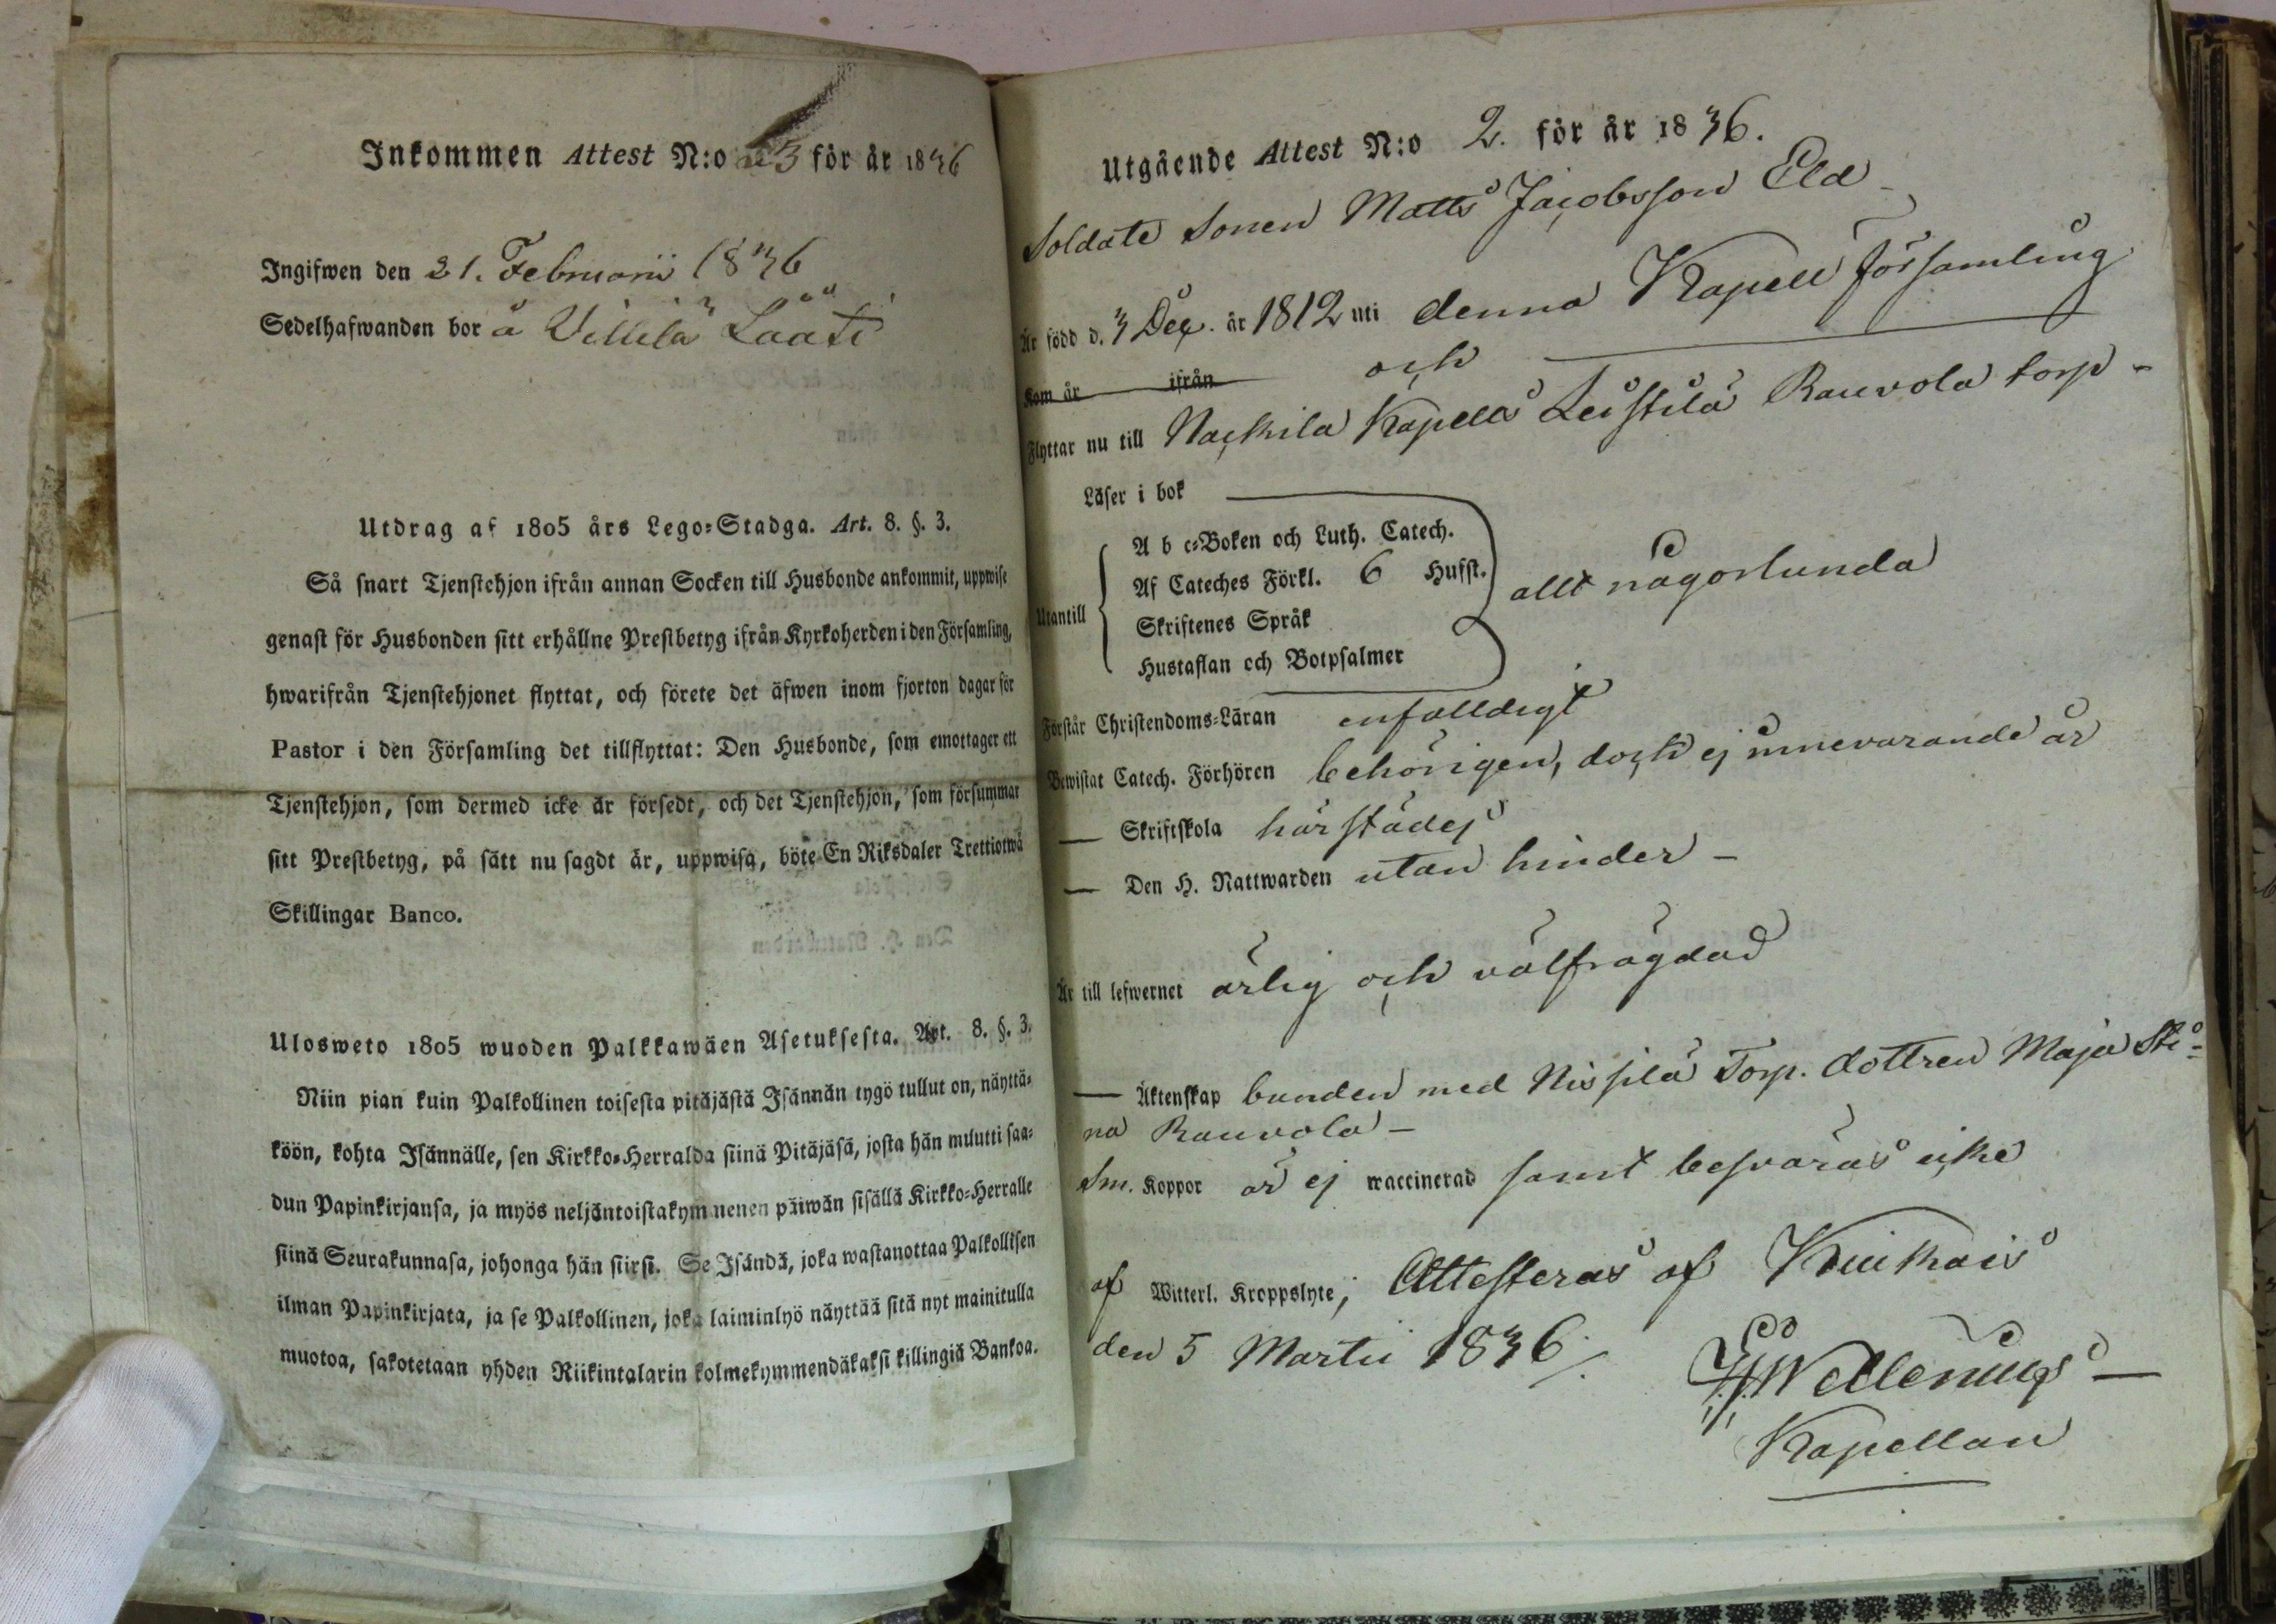 Inkommen Attest N:o 3 för år 1836
Ingifwen den 21. Februarii 1836
Sedelhafwanden bor å Villilä
Utdrag af 1805 års Lego-Stadga. Art. 8. §. 3.
Så snart Tjenstehjon ifrån annan Socken till Husbonde ankommit, uppwise
genast för Husbonden sitt erhållne Prestbetyg ifrån Kyrkoherden i den Församling,
hwarifrån Tjenstehjonet flyttat, och förete det äfwen inom fjorton dagar för
Pastor i den Församling det tillflyttat: Den Husbonde, som emottager ett
Tjenstehjon, som dermed icke är försedt, och det Tjenstehjon, som försummar
sitt Prestbetyg, på sätt nu sagdt är, uppwisa, böte En Riksdaler Trettiotwå
Skillingar Banco.
Ulosweto 1805 wuoden Palkkawäen Asetuksesta. Art. 8. §. 3.
Niin pian kuin Palkollinen toisesta pitäjästä Isännän tygö tullut on, näyttä-
köön, kohta Isännälle, sen Kirkko-Herralda siinä Pitäjäsä, josta hän muutti saa-
dun Papinkirjansa, ja myös neljäntoistakymmenen päiwän sisällä Kirkko-Herralle
siinä Seurakunnasa, johonga hän siirsi. Se Isändä, joka wastanottaa Palkollisen
ilman Papinkirjata, ja se Palkollinen, joka laiminlyö näyttää sitä nyt mainitulla
muotoa, sakotetaan yhden Riikintalarin kolmekymmendäkaksi killingiä Bankoa.
Utgående Attest N:o 2. för år 1836.
Soldate Sonen Matts Jacobsson Eld
Är född d. 3 Dec. år 1812 uti denna Kapell församling
Kom år ifrån och
Flyttar nu till Nackila Kapells Leistilä Rauvola torp -
Läser i bok
A b c-Boken och Luth. Catech.
Af Cateches Förkl. 6 Hufst.
Utantill
allt någorlunda
Skriftenes Språk
Hustaflan och Botpsalmer
Förstår Christendoms-Läran enfalldigt
Bewistat Catech. Förhören behörigen, dock ej innevarande år
— Skriftskola härstädes
— Den H. Nattwarden utan hinder -
Är till lefwernet ärlig och välfrägdad
— Äktenskap bunden med Nissilä Torp. dottren Maja Sti-
na Rauvola -
Sm. Koppor är ej waccinerad samt besväras icke
af Witterl. Kroppslyte; Attesteras af Kiuikais
den 5 Martii 1836.
Kapellan